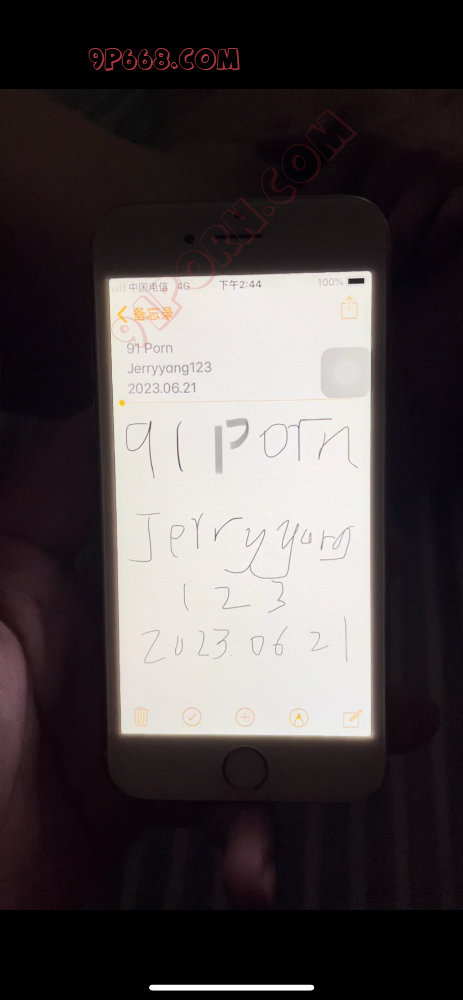 9P668.COM
91PORN.COM
中国电信 4G 下午2:44 100%
备忘录
91 Porn
Jerryyang123
2023.06.21
91 Porn
Jerryyang
123
2023.06 21